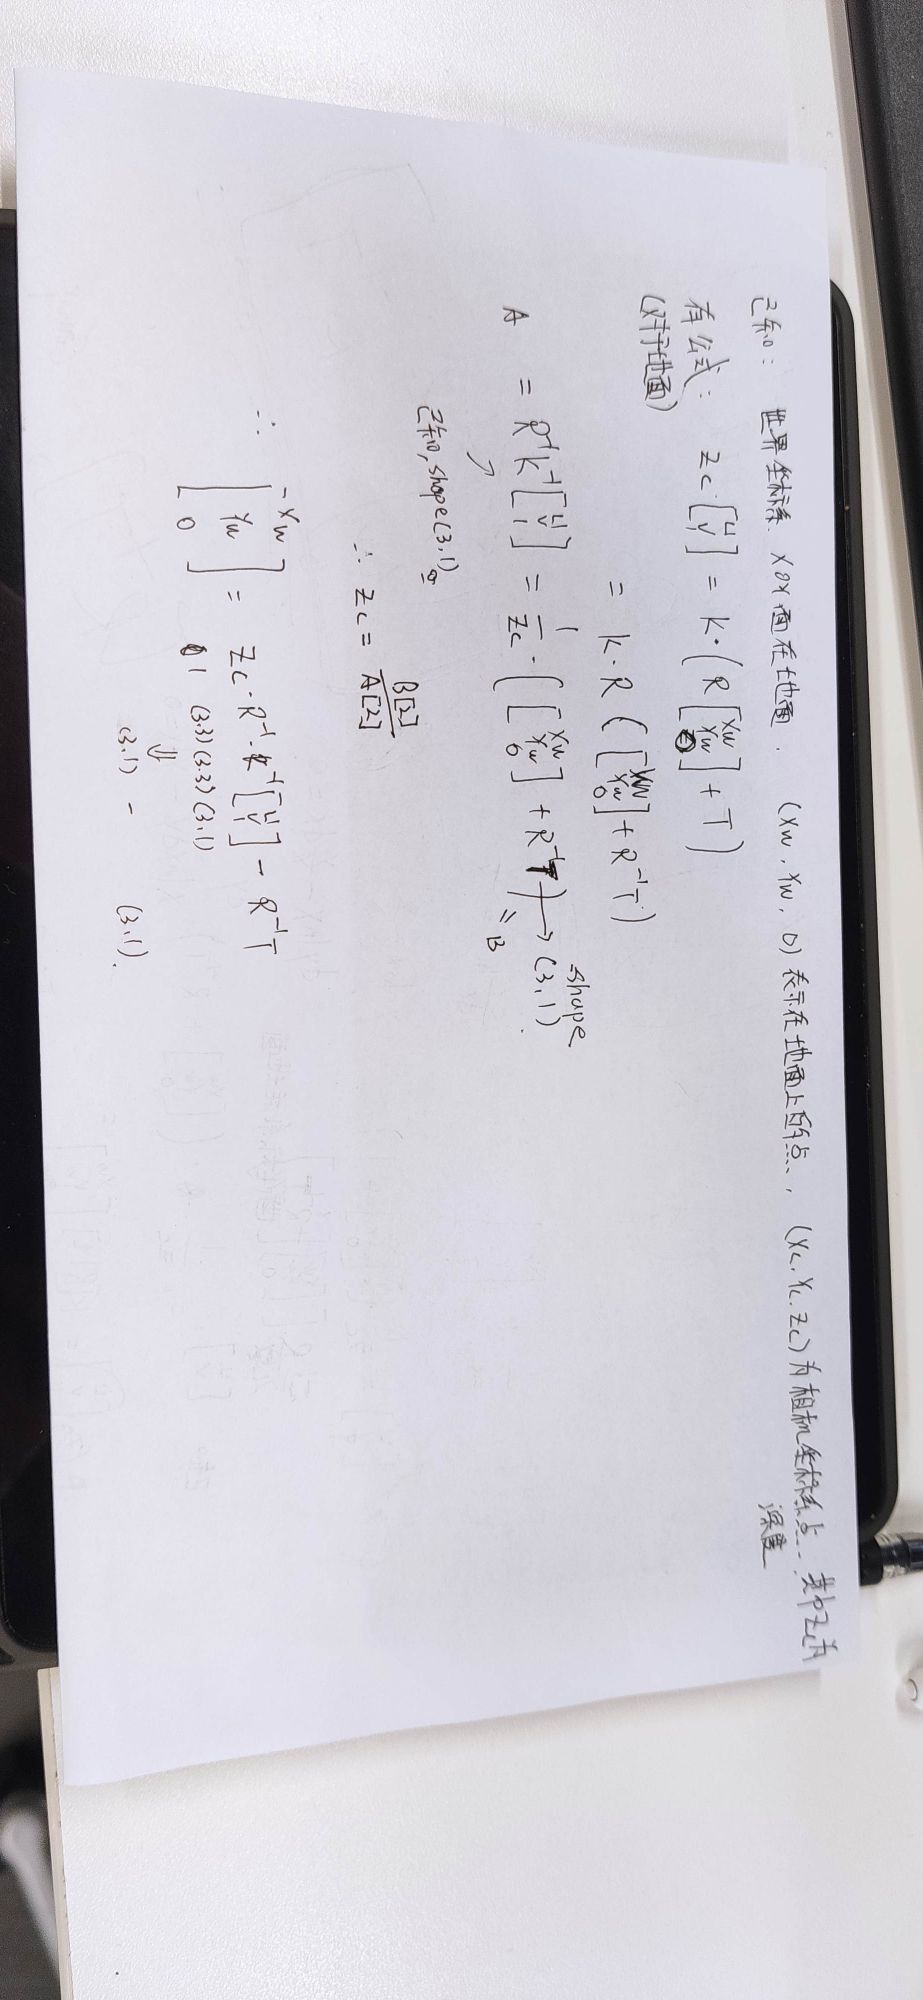 已知: 世界坐标系 XOY面在地面. (Xw, Yw, 0) 表示在地面上的点, (Xc, Yc, Zc) 为相机坐标系点, 其中Zc为
深度
有公式: Zc·[u v 1] = K·(R [Xw Yw 0] + T)
(对于地面)
= K·R ([Xw Yw 0] + R⁻¹T)
A = R⁻¹K⁻¹[u v 1] = 1/Zc · ([Xw Yw 0] + R⁻¹T) → (3,1).
shape
= B
已知, shape(3,1)
∴ Zc = B[2]/A[2]
∴ [Xw Yw 0] = Zc·R⁻¹·K⁻¹[u v 1] − R⁻¹T
1 (3.3) (3.3) (3.1)
⇓
(3.1) − (3.1).